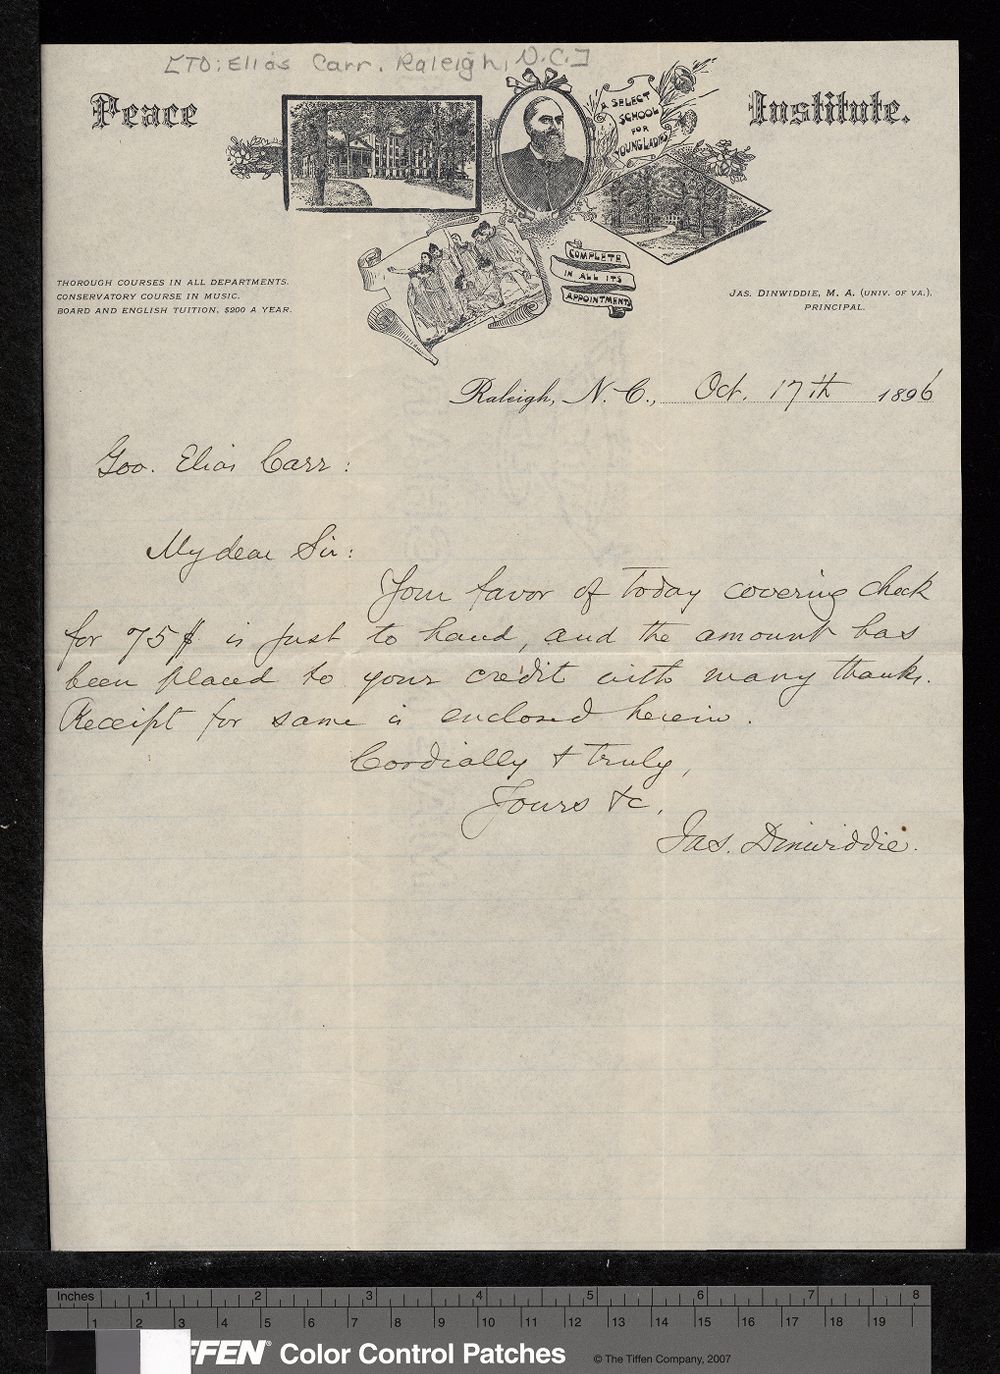 [TO: Elias Carr. Raleigh, N.C.]
Peace Institute.
A SELECT
SCHOOL
FOR
YOUNG LADIES
COMPLETE
IN ALL ITS
APPOINTMENTS
THOROUGH COURSES IN ALL DEPARTMENTS.
CONSERVATORY COURSE IN MUSIC.
BOARD AND ENGLISH TUITION, $200 A YEAR.
JAS. DINWIDDIE, M. A. (UNIV. OF VA.),
PRINCIPAL.
Raleigh, N. C., Oct. 17th 1896
Gov. Elias Carr:
My dear Sir:
Your favor of today covering check
for 75$ is just to hand, and the amount has
been placed to your credit with many thanks.
Receipt for same is enclosed herein.
Cordially & truly,
Yours &c,
Jas. Dinwiddie.
Inches 1 2 3 4 5 6 7 8
1 2 3 4 5 6 7 8 9 10 11 12 13 14 15 16 17 18 19
FFEN® Color Control Patches © The Tiffen Company, 2007